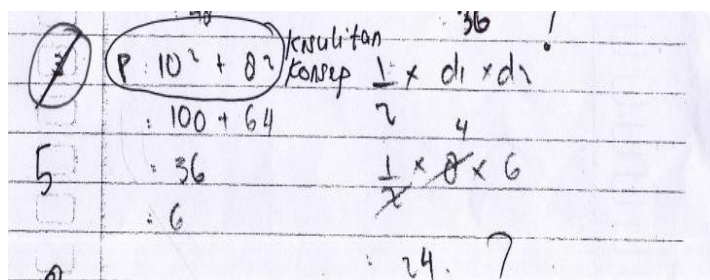 36 !
3 P : 10² + 8² kesulitan
konsep 1/2 x d1 x d2
: 100 + 64
5 : 36 1/2 x 8 x 6
4
: 6
: 24. ?